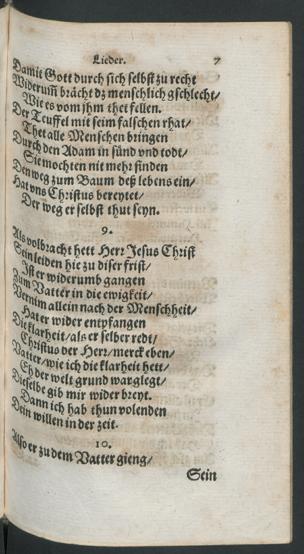 Lieder. 7
Damit Gott durch sich selbst zu recht
Widerum̃ brächt dz menschlich gschlecht/
Wie es vom jhm thet fellen.
Der Teuffel mit seim falschen rhat/
Thet alle Menschen bringen
Durch den Adam in sünd vnd todt/
Sie mochten nit mehr finden
Den weg zum Baum deß lebens ein/
Hat vns Christus bereytet/
Der weg er selbst thut seyn.
9.
Als volbracht hett Herr Jesus Christ
Sein leiden hie zu diser frist/
Ist er widerumb gangen
Zum Vatter in die ewigkeit/
Vernim allein nach der Menschheit/
Hat er wider entpfangen
Die klarheit/als er selber redt/
Christus der Herr/merck eben/
Vatter/wie ich die klarheit hett/
Eh der welt grund war glegt/
Dieselbe gib mir wider breyt.
Dann ich hab thun volenden
Dein willen in der zeit.
10.
Also er zu dem Vatter gieng/
Sein